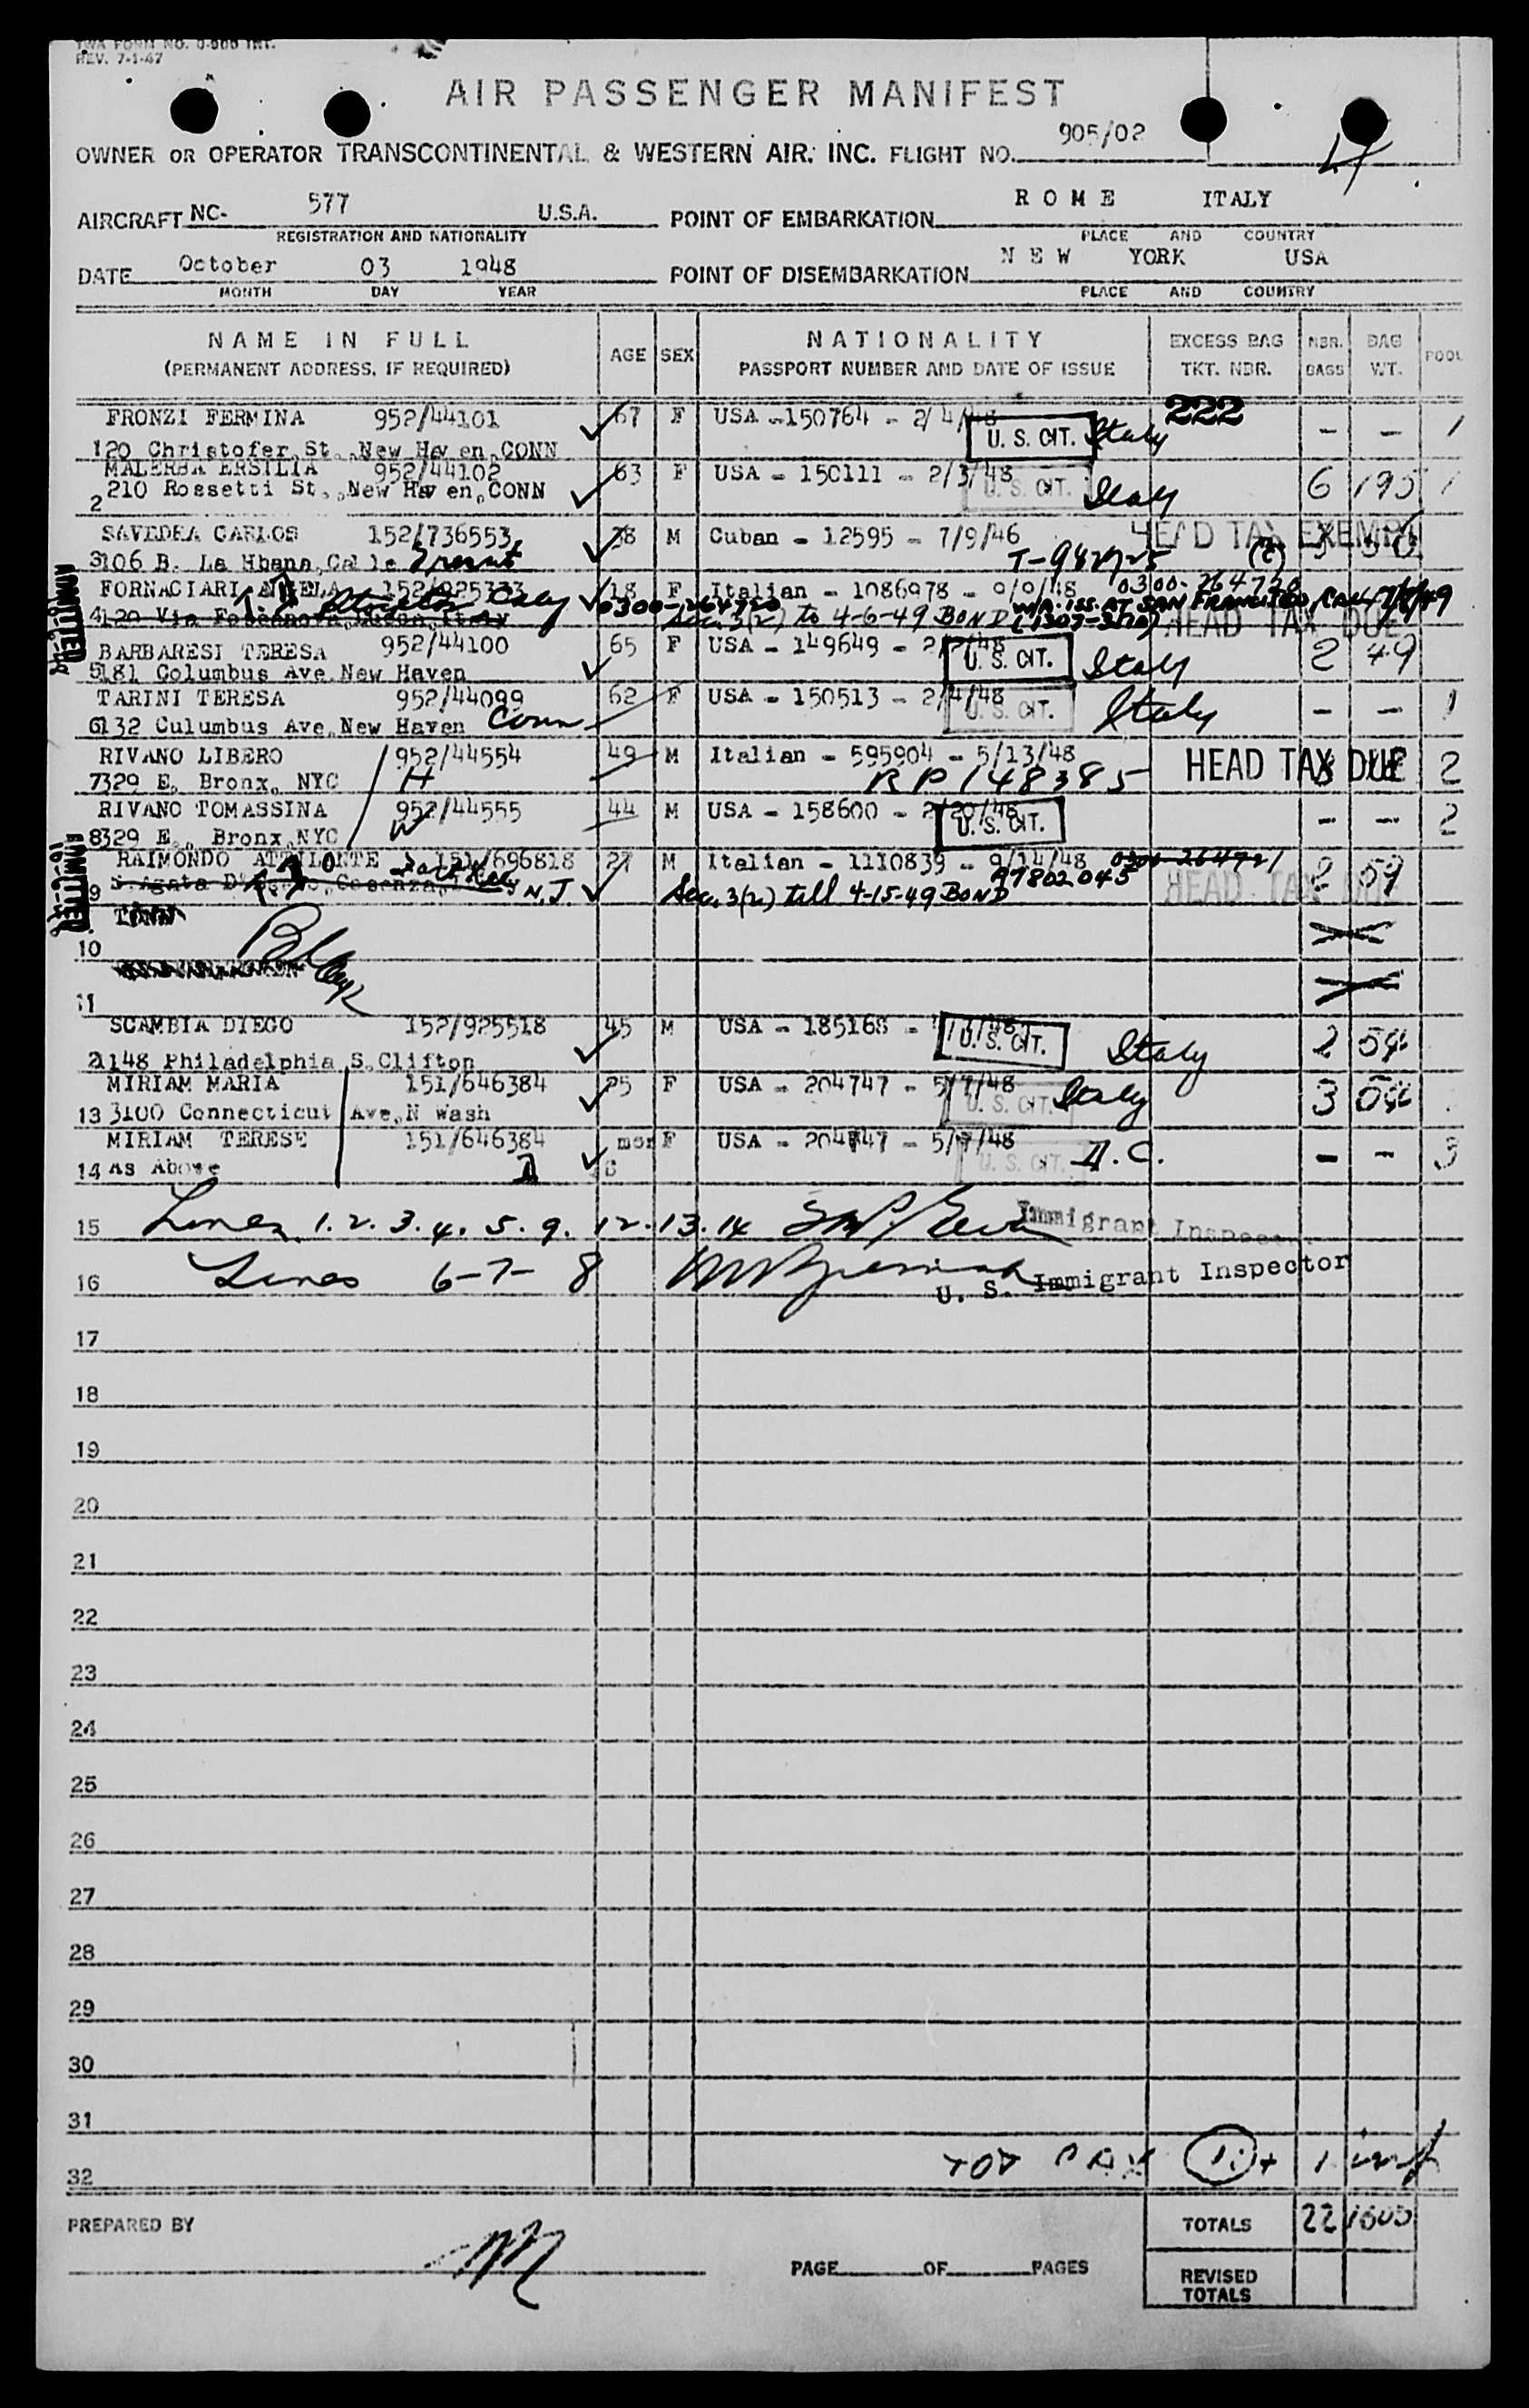 TWA FORM NO. 0-900 INT.
REV. 7-1-47
AIR PASSENGER MANIFEST
OWNER OR OPERATOR TRANSCONTINENTAL & WESTERN AIR, INC. FLIGHT NO. 905/02
AIRCRAFT NC- 577 U.S.A. POINT OF EMBARKATION ROME ITALY
REGISTRATION AND NATIONALITY PLACE AND COUNTRY
DATE October 03 1948 POINT OF DISEMBARKATION NEW YORK USA
MONTH DAY YEAR PLACE AND COUNTRY
NAME IN FULL AGE SEX NATIONALITY EXCESS BAG NBR. BAG POOL
(PERMANENT ADDRESS, IF REQUIRED) PASSPORT NUMBER AND DATE OF ISSUE TKT. NBR. BAGS WT.
FRONZI FERMINA 952/44101 67 F USA -150764 - 2/4/48 222 - - 1
120 Christofer St.,New Haven,CONN U. S. CIT. Italy
MALERBA ERSILIA 952/44102 63 F USA - 150111 - 2/3/48 6 195 1
2 210 Rossetti St.,New Haven,CONN U. S. CIT. Italy
SAVEDRA CARLOS 152/736553 38 M Cuban - 12595 - 7/9/46 HEAD TAX EXEMPT
3106 B. La Hbana,Calle T-982725 (2)
FORNACIARI 152/925333 18 F Italian - 1086978 - 9/9/48 0300-264720
4120 Via 0300-264720 Sec. 3(2) to 4-6-49 BOND W/A ISS. AT SAN FRANCISCO, CAL
HEAD TAX DUE
ADMITTED
BARBARESI TERESA 952/44100 65 F USA - 149649 - 2/2/48 2 49
5181 Columbus Ave.New Haven U. S. CIT. Italy
TARINI TERESA 952/44099 62 F USA - 150513 - 2/4/48 - - 1
6132 Culumbus Ave.New Haven Conn U. S. CIT. Italy
RIVANO LIBERO 952/44554 49 M Italian - 595904 - 5/13/48 HEAD TAX DUE 2
7329 E. Bronx, NYC H RP148385
RIVANO TOMASSINA 952/44555 44 M USA - 158600 - 2/20/48 - - 2
8329 E., Bronx,NYC W U. S. CIT.
RAIMONDO 151/696818 27 M Italian - 1110839 - 9/14/48 0300-264721 2 59
9 S.Agata N.J. Sec. 3(2) till 4-15-49 BOND A7802045 HEAD TAX DUE
ADMITTED
10
11
SCAMBIA DIEGO 152/925518 45 M USA - 185168 - 2
2148 Philadelphia,S.Clifton U. S. CIT. Italy
MIRIAM MARIA 151/646384 25 F USA - 204747 - 5/7/48 3
13 3100 Connecticut Ave,N Wash U. S. CIT. Italy
MIRIAM TERESE 151/646384 mon F USA - 204747 - 5/7/48 - - 3
14 As Above 6 U. S. CIT. D.C.
15 Lines 1. 2. 3. 4. 5. 9. 12. 13. 14 Immigrant Inspector
16 Lines 6-7- 8 U. S. Immigrant Inspector
17
18
19
20
21
22
23
24
25
26
27
28
29
30
31
32 TOT PAX + 1 inf
PREPARED BY TOTALS 22
PAGE OF PAGES REVISED TOTALS